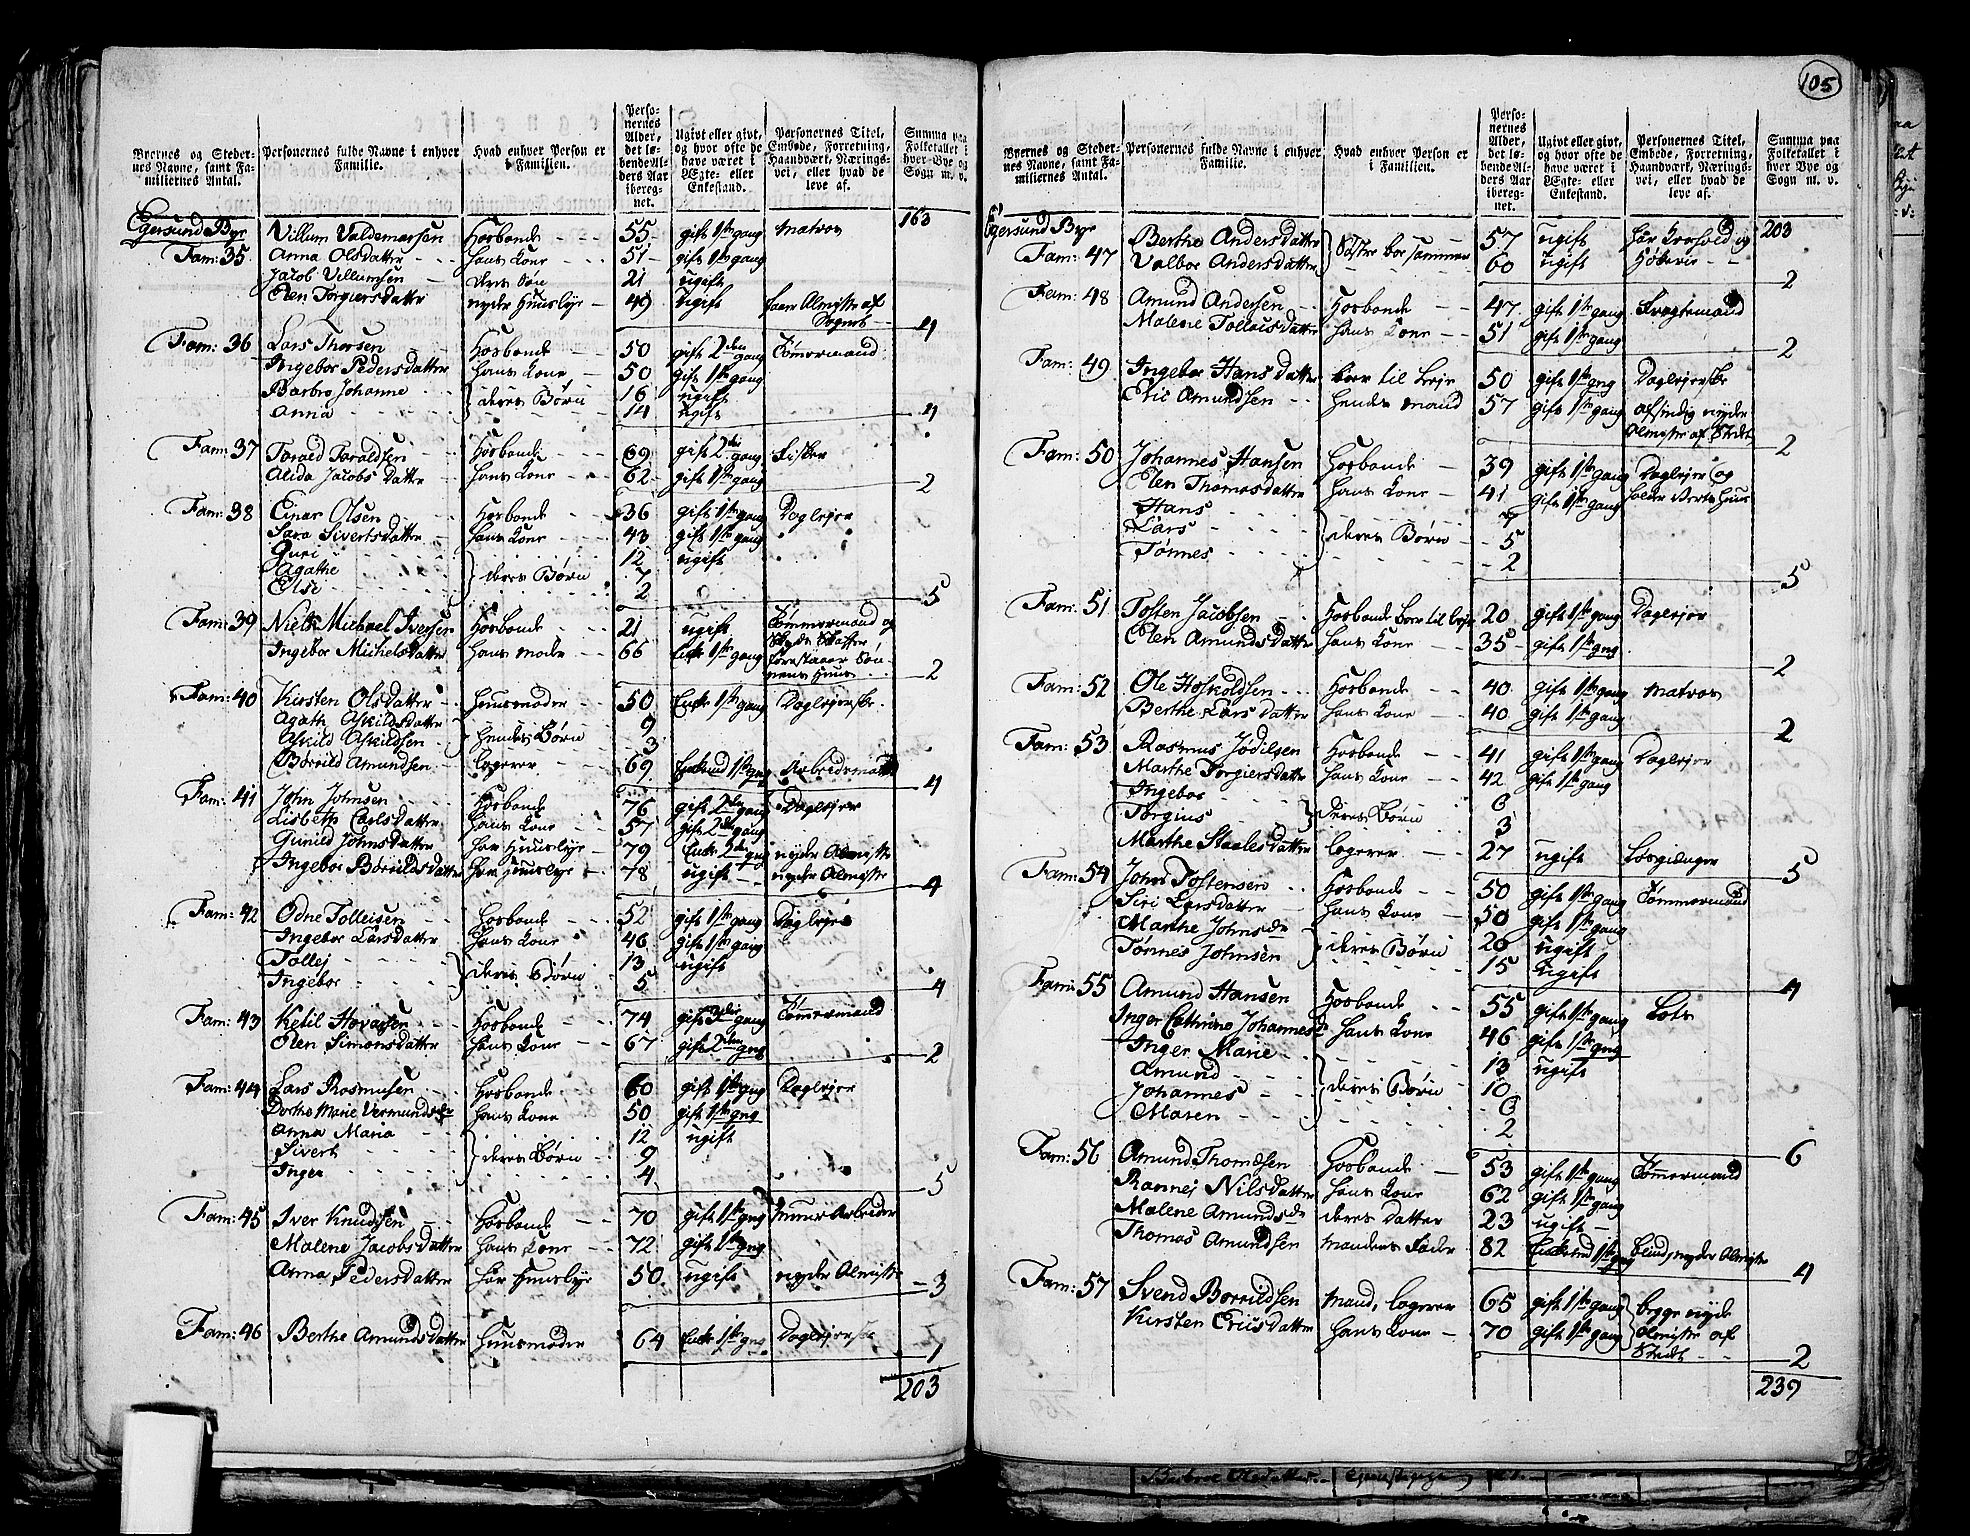 105
Byernes og Stedernes Navne, samt Familiernes Antal.
Personernes fulde Navne i enhver Familie.
Hvad enhver Person er i Familien.
Personernes Alder, det løbende Alders Aar iberegnet.
Ugivt eller givt, og hvor ofte de have været i Ægte- eller Enkestand.
Personernes Titel, Embede, Forretning, Haandværk, Næringsvei, eller hvad de leve af.
Summa paa Folketallet i hver Bye og Sogn m. v.
Egersund Bye 163
Fam: 35 Villum Valdemarsen Hosbonde 55 gift 1ste gang Matros
Anna Olsdatter hans Kone 51 gift 1ste gang
Jacob Villumsen deres Søn 21 ugift
Elen Torgiersdatter nyder Huuslye 49 ugift faaer Almisse af Sognet 4
Fam: 36 Lars Thorsen Hosbonde 50 gift 2den gang Tømmermand
Ingebor Pedersdatter hans Kone 50 gift 1ste gang
Barbro Johanne deres Børn 16 ugift
Anna 14 ugift 4
Fam: 37 Tarald Taraldsen Hosbonde 69 gift 2den gang Fisker
Alida Jacobs Datter hans Kone 62 gift 1ste gang 2
Fam: 38 Einar Olsen Hosbonde 36 gift 1ste gang Daglejer
Sara Sivertsdatter hans Kone 43 gift 1ste gang
Guri deres Børn 12 ugift
Agathe 7
Else 2 5
Fam: 39 Niels Michael Iversen Hosbonde 21 ugift Tømmermand og
Ingebor Michelsdatter hans Moder 66 Enke 1ste gang forestaaer Sønnens Huus 2
Fam: 40 Kirsten Olsdatter Huusmoder 50 Enke 1ste gang Daglejerske
Agath Askildsdatter hendes Børn 9
Askild Askildsen 3
Borrild Amundsen logerer 69 Enkemd 1ste gng Arbeidsmand 4
Fam: 41 John Johnsen Hosbonde 76 gift 2den gang Daglejer
Lisbeth Carlsdatter hans Kone 57 gift 2den gang
Gunild Johnsdatter har Huuslye 79 Enke 2den gng nyder Almisse
Ingebor Borrildsdatter har Huuslye 78 ugift nyder Almisse 4
Fam: 42 Odne Tolleisen Hosbonde 52 gift 1ste gang Daglejer
Ingebor Larsdatter hans Kone 46 gift 1ste gang
Tollej deres Børn 13 ugift
Ingebor 5 4
Fam: 43 Ketil Hovarsen Hosbonde 74 gift gang Tømmermand
Elen Simonsdatter hans Kone 67 gift 2den gng 2
Fam: 44 Lars Rasmusen Hosbonde 60 gift 1ste gng Daglejer
Dorthe Marie Vermundsdr hans Kone 50 gift 1ste gng
Anna Maria deres Børn 12 ugift
Sivert 9
Inger 4 5
Fam: 45 Iver Knudsen Hosbonde 70 gift 1ste gng Arbeider
Malene Jacobs Datter hans Kone 72 gift gng
Anna Pedersdatter har Huuslye 50 ugift nyder Almisse 3
Fam: 46 Berthe Amunds datter Huusmoder 64 Enke 1ste gng Daglejerske 1
203
Byernes og Stedernes Navne, samt Familiernes Antal.
Personernes fulde Navne i enhver Familie.
Hvad enhver Person er i Familien.
Personernes Alder, det løbende Alders Aar iberegnet.
Ugivt eller givt, og hvor ofte de have været i Ægte- eller Enkestand.
Personernes Titel, Embede, Forretning, Haandværk, Næringsvei, eller hvad de leve af.
Summa paa Folketallet i hver Bye og Sogn m. v.
Egersund Bye 203
Fam: 47 Berthe Anders datter Søstre boe sammen 57 ugift
Valbor Andersdatter 60 ugift Hökerie 2
Fam: 48 Amund Andersen Hosbonde 47 gift 1ste gang Fragtemand
Malene Tollaisdatter hans Kone 51 gift 1ste gang 2
Fam: 49 Ingebor Hans datter boer til Leje 50 gift 1ste gng Daglejerske
Eric Amundsen hendes Mand 57 gift 1ste gang afsindig nyder Almisse af Stedet 2
Fam: 50 Johannes Hansen Hosbonde 39 gift 1ste gang Daglejer og
Elen Thomasdatter hans Kone 41 gift 1ste gang holder Vertshuus
Hans deres Børn 7
Lars 5
Tønnes 2 5
Fam: 51 Tosten Jacobsen Hosbonde boer til Leje 20 gift 1ste gang Daglejer
Elen Amundsdatter hans Kone 35 gift 1ste gng 2
Fam: 52 Ole Hoskoldsen Hosbonde 40 gift 1ste gang Matros
Berthe Lars datter hans Kone 40 gift 1ste gang 2
Fam: 53 Rasmus Jødilsen Hosbonde 41 gift 1ste gang Daglejer
Marthe Torgiersdatter hans Kone 42 gift 1ste gang
Ingebor deres Børn 6
Torgius 3
Marthe Staalesdatter logerer 27 ugift Losgiænger 5
Fam: 54 John Tostensen Hosbonde 50 gift 1ste gang Tømmermand
Siri Larsdatter hans Kone 50 gift 1ste gang
Marthe Johnsdr deres Børn 26 ugift
Tønnes Johnsen 15 ugift 4
Fam: 55 Amund Hansen Hosbonde 55 gift 1ste gang Lots
Inger Cathrine Johannesdr hans Kone 46 gift 1ste gng
Inger Marie deres Børn 13 ugift
Amund 10
Johannes 6
Maren 2 6
Fam: 56 Amund Thomæsen Hosbonde 53 gift 1ste gang Tømmermand
Rannej Nilsdatter hans Kone 62 gift 1ste gang
Malene Amundsdr deres Datter 23 ugift
Thomas Amundsen Mandens Fader 82 Enkemd 1ste gng blind, nyder Almisse 4
Fam: 57 Svend Borrildsen Mand, logerer 65 gift 1ste gang begge nyde
Kirsten Ericsdatter hans Kone 70 gift 1ste gang Almisse af Stedet 2
239